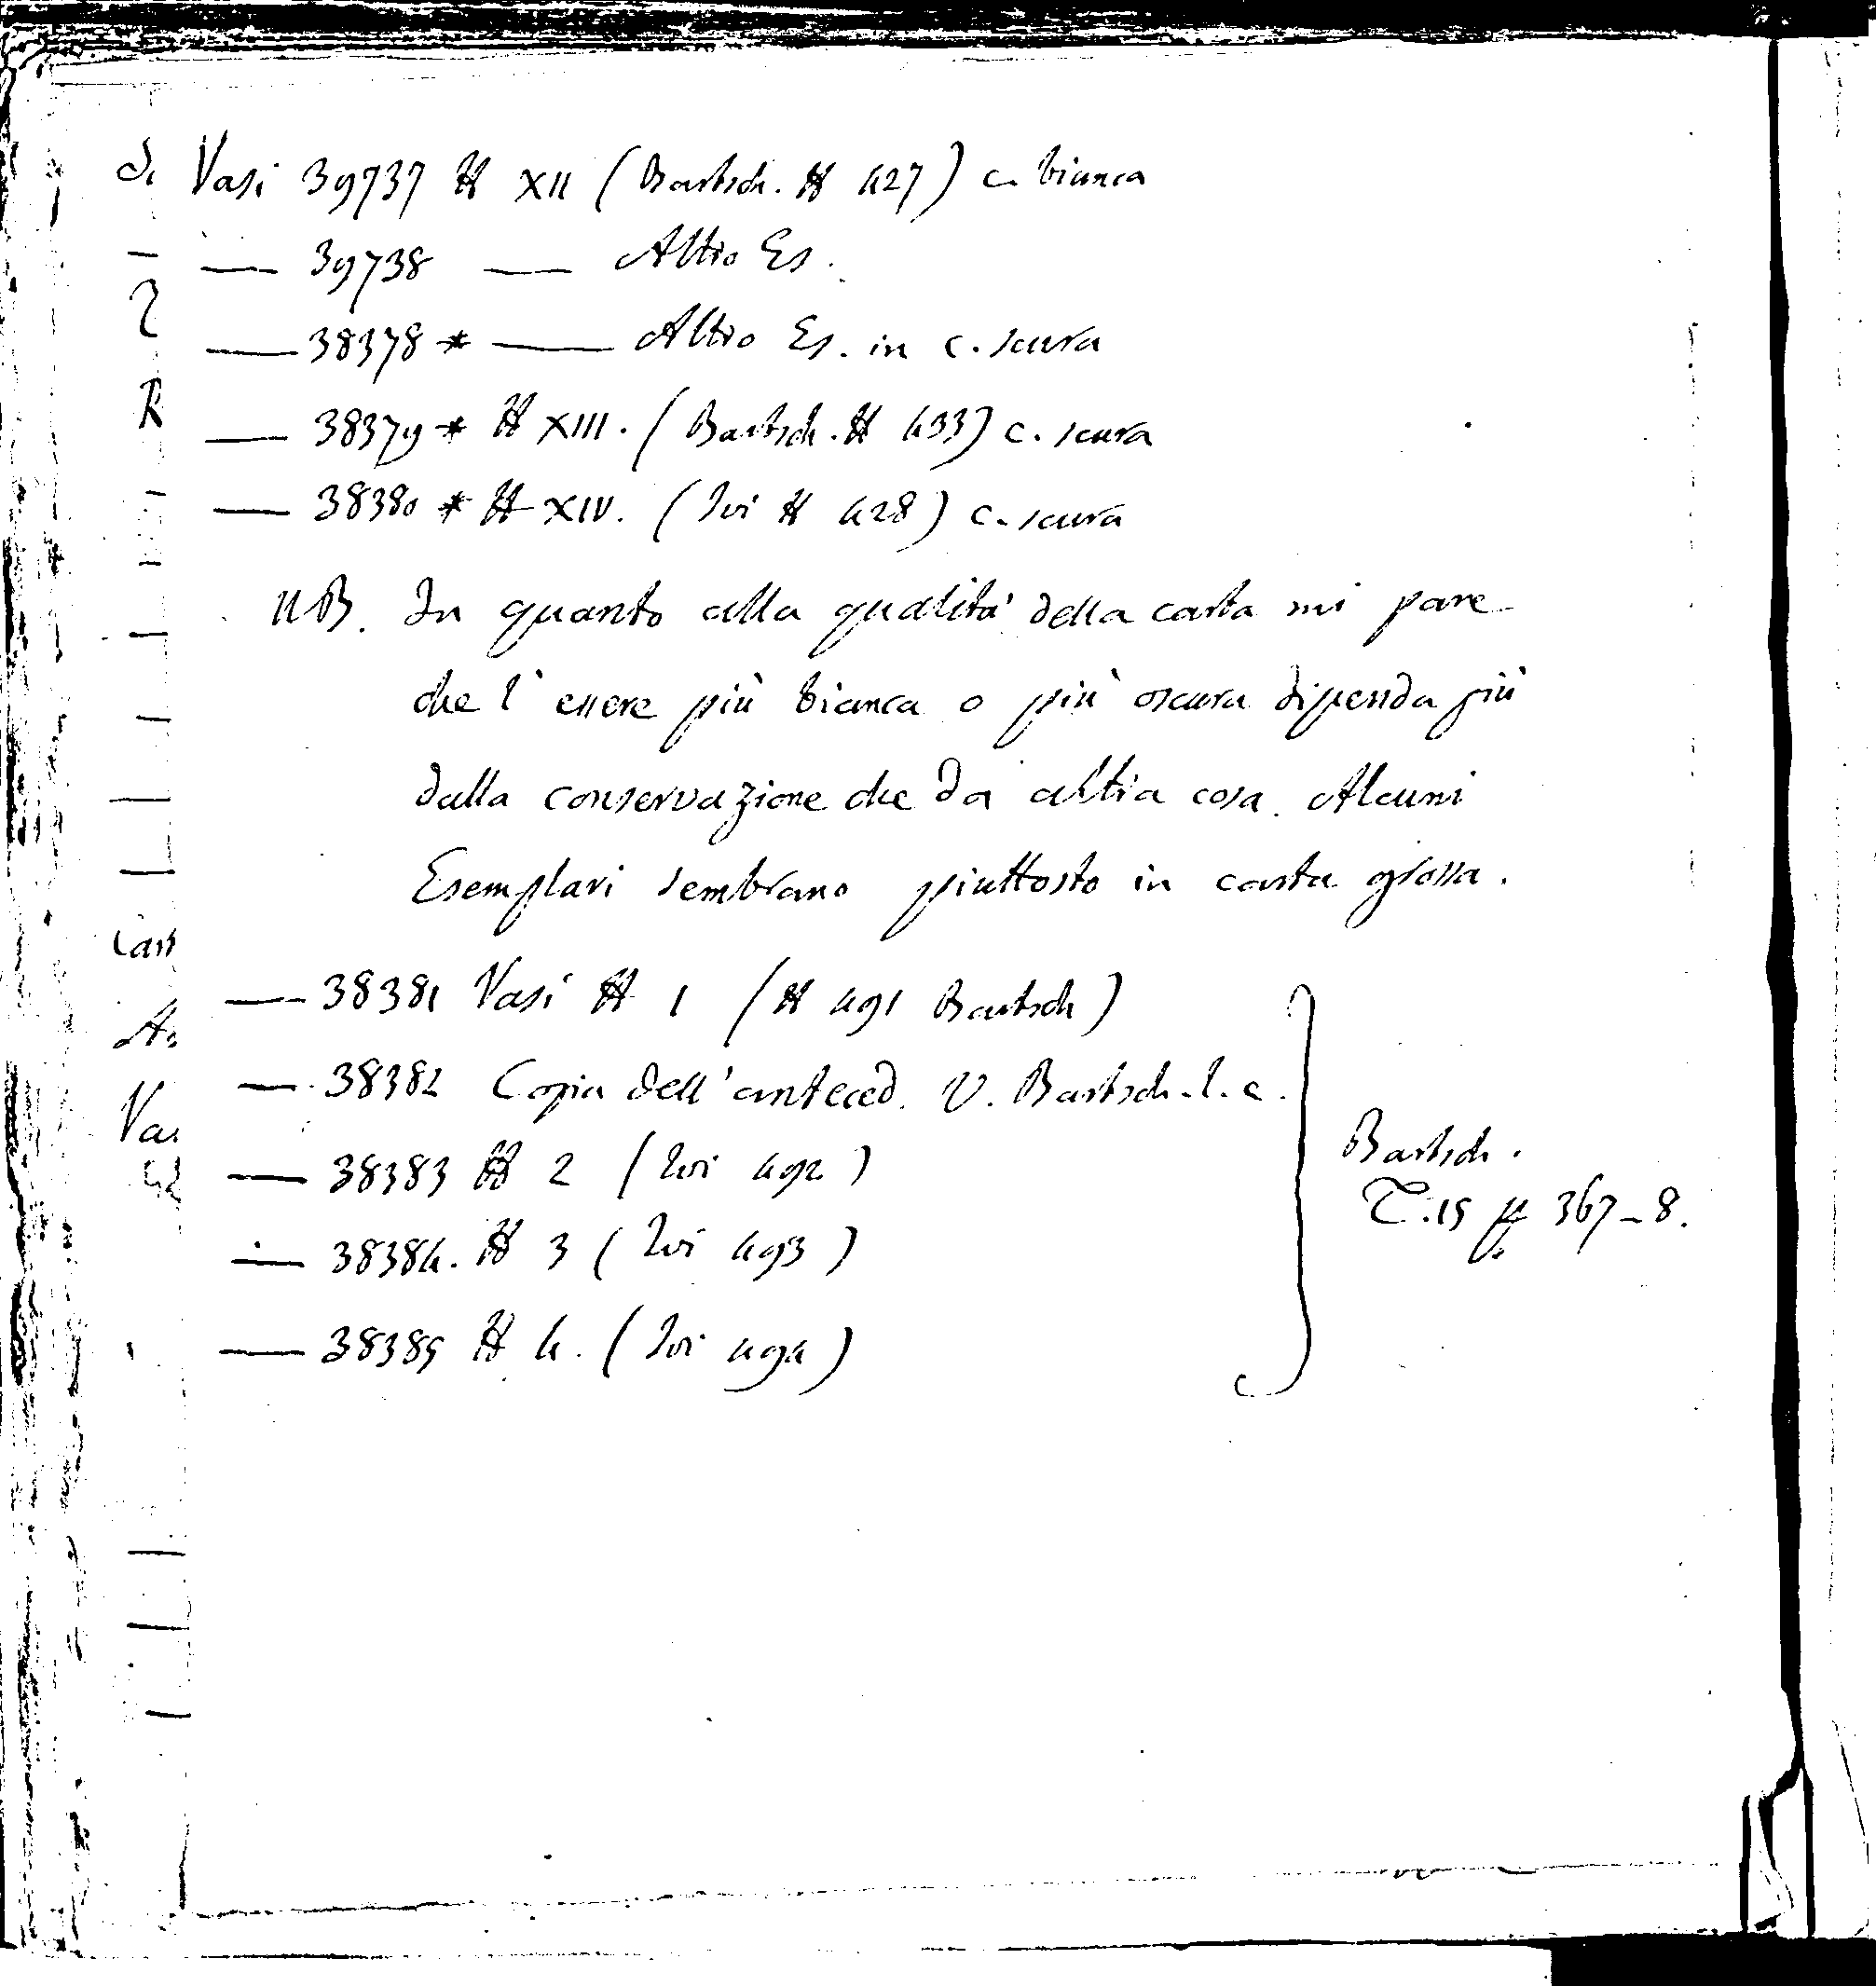 Vasi 39737 # XII (Bartsch. # 427) c. bianca
— 39738 — Altro Es.
— 38378 * — Altro Es. in c. scura
— 38379 * # XIII. (Bartsch. # 433) c. scura
— 38380 * # XIV. (Ivi # 428) c. scura
NB. In quanto alla qualità della carta mi pare
che l'essere più bianca o più oscura dipenda più
dalla conservazione che da altra cosa. Alcuni
Esemplari sembrano piuttosto in carta grossa.
— 38381 Vasi # 1 (# 491 Bartsch)
— 38382 Copia dell'anteced. V. Bartsch. l. c.
— 38383 # 2 (Ivi 492)
— 38384. # 3 (Ivi 493)
— 38385 # 4. (Ivi 494)
Bartsch.
T. 15 p. 367-8.